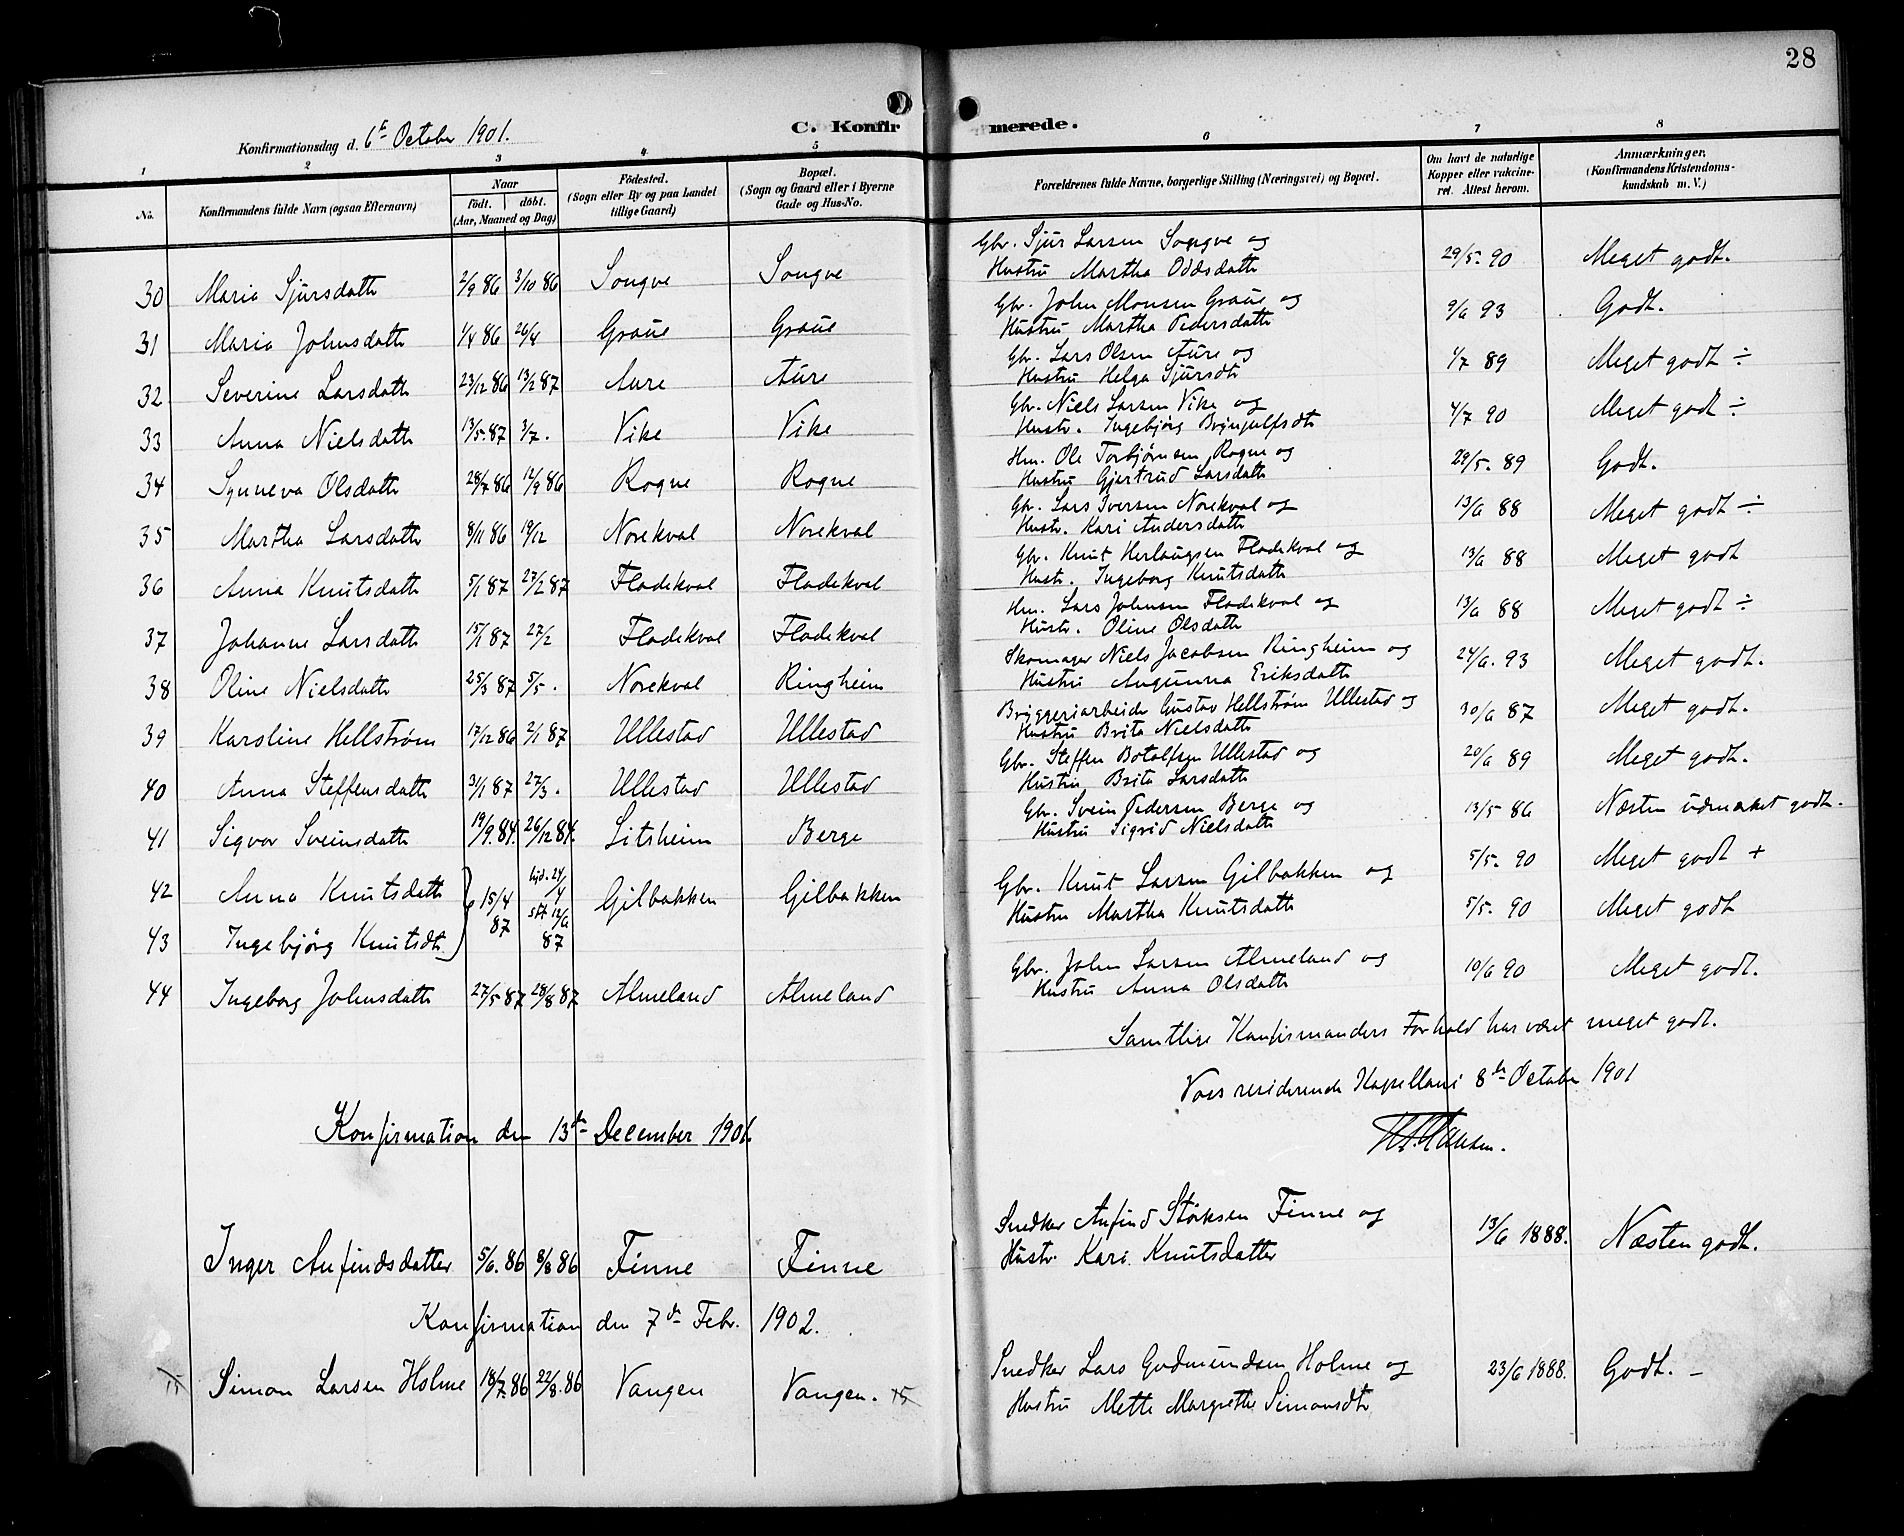 28
C. Konfirmerede.
Konfirmationsdag d. 6te October 1901.
1 2 3 4 5 6 7 8
No. Konfirmandens fulde Navn (ogsaa Efternavn) Naar født. døbt. (Aar, Maaned og Dag) Fødested. (Sogn eller By og paa Landet tillige Gaard) Bopæl. (Sogn og Gaard eller i Byerne Gade og Hus-No. Forældrenes fulde Navne, borgerlige Stilling (Næringsvei) og Bopæl. Om havt de naturlige Kopper eller vakcineret. Attest herom. Anmærkninger. (Konfirmandens Kristendomskundskab m. V.)
30 Maria Sjursdatter 2/9 86 3/10 86 Songve Songve Gbr. Sjur Larsen Songve og Hustru Martha Oddsdatter 29/5. 90 Meget godt.
31 Maria Johnsdatter 1/4 86 26/4 Graue Graue Gbr. John Monsen Graue og Hustru Martha Pedersdatter 9/6 93 Godt.
32 Severine Larsdatter 23/12 86 13/2 87 Aure Aure Gbr. Lars Olsen Aure og Hustru Helga Sjursdtr 1/7 89 Meget godt ÷
33 Anna Nielsdatter 13/5. 87 3/7. Vike Vike Gbr. Niels Larsen Vike og Hustr. Ingebjørg Brynjulfsdtr 4/7 90 Meget godt ÷
34 Synneva Olsdatter 28/7 86 12/9 86 Rogne Rogne Hm. Ole Torbjørnsen Rogne og Hustru Gjertrud Larsdatter 29/5. 89 Godt.
35 Martha Larsdatter 8/11 86 19/12 Norekval Norekval Gbr. Lars Iversen Norekval og Hustr. Kari Andersdatter 13/6 88 Meget godt ÷
36 Anna Knutsdatter 5/1 87 27/2 87 Fladekval Fladekval Gbr. Knut Herlaugsen Fladekval og Hustr. Ingeborg Knutsdatter 13/6 88 Meget godt
37 Johanne Larsdatter 15/1 87 27/2 Fladekval Fladekval Hm. Lars Johnsen Fladekval og Hustr. Oline Olsdatter 13/6 88 Meget godt ÷
38 Oline Nielsdatter 25/3 87 5/5. Norekval Ringheim Skomager Niels Jacobsen Ringheim og Hustru Angunna Eriksdatter 24/6. 93 Meget godt.
39 Karoline Hellstrøm 17/12 86 2/1 87 Ullestad Ullestad Bryggeriarbeider Gustav Hellstrøm Ullestad og Hustru Brita Nielsdatter 30/6 87 Meget godt.
40 Anna Steffensdatter 31/1 87 27/3. Ullestad Ullestad Gbr. Steffen Botolfsen Ullestad og Hustru Brita Larsdatter 20/6 89 Meget godt.
41 Sigvor Sveinsdatter 19/9. 84. 26/12 84. Litsheim Berge Gbr. Svein Pedersen Berge og Hustru Sigrid Nielsdatter 13/5 86 Næsten udmærket godt.
42 Anna Knutsdatter 15/4 87 hjd. 24/4 stf 12/6 87 Gilbakken Gilbakken Gbr. Knut Larsen Gilbakken og Hustru Martha Knutsdatter 5/5. 90 Meget godt +
43 Ingebjørg Knutsdtr. 5/5. 90 Meget godt
44 Ingeborg Johnsdatter 27/5 87 28/8 87 Almeland Almeland Gbr. John Larsen Almeland og Hustru Anna Olsdatter 10/6 90 Meget godt.
Samtlige Konfirmanders Forhold har været meget godt.
Voss residerende Kapellani 8de October 1901
Konfirmation den 13de December 1901.
Inger Anfindsdatter 5/6. 86 8/8 86 Finne Finne Snedker Anfind Størksen Finne og Hustr. Kari Knutsdatter 13/6 1888. Næsten godt.
Konfirmation den 7de Febr. 1902.
Simon Larsen Holme 18/7. 86 22/8. 86 Vangen Vangen. Snedker Lars Gudmundsen Holme og Hustru Mette Margrethe Simonsdtr 23/6 1888. Godt. –